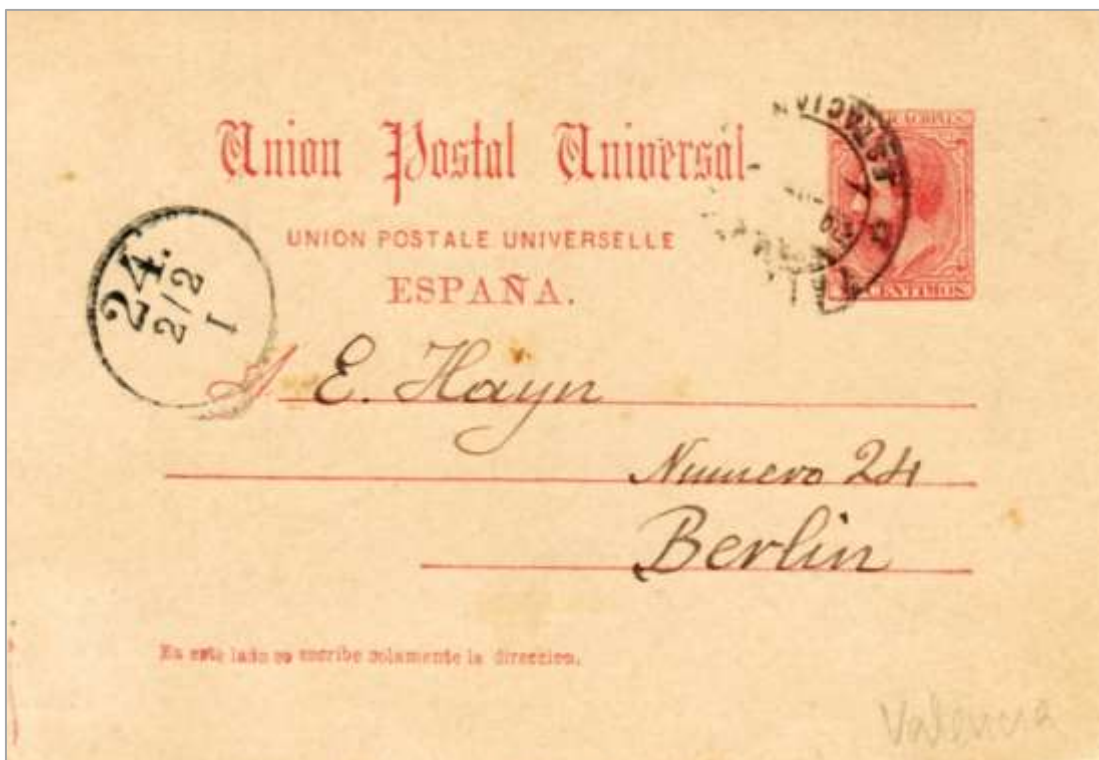 Union Postal Universal
UNION POSTALE UNIVERSELLE
ESPAÑA.
CENTIMOS
24.
2/2
1
A E. Hayn
Numero 24
Berlin
En este lado se escribe solamente la direccion.
Valencia